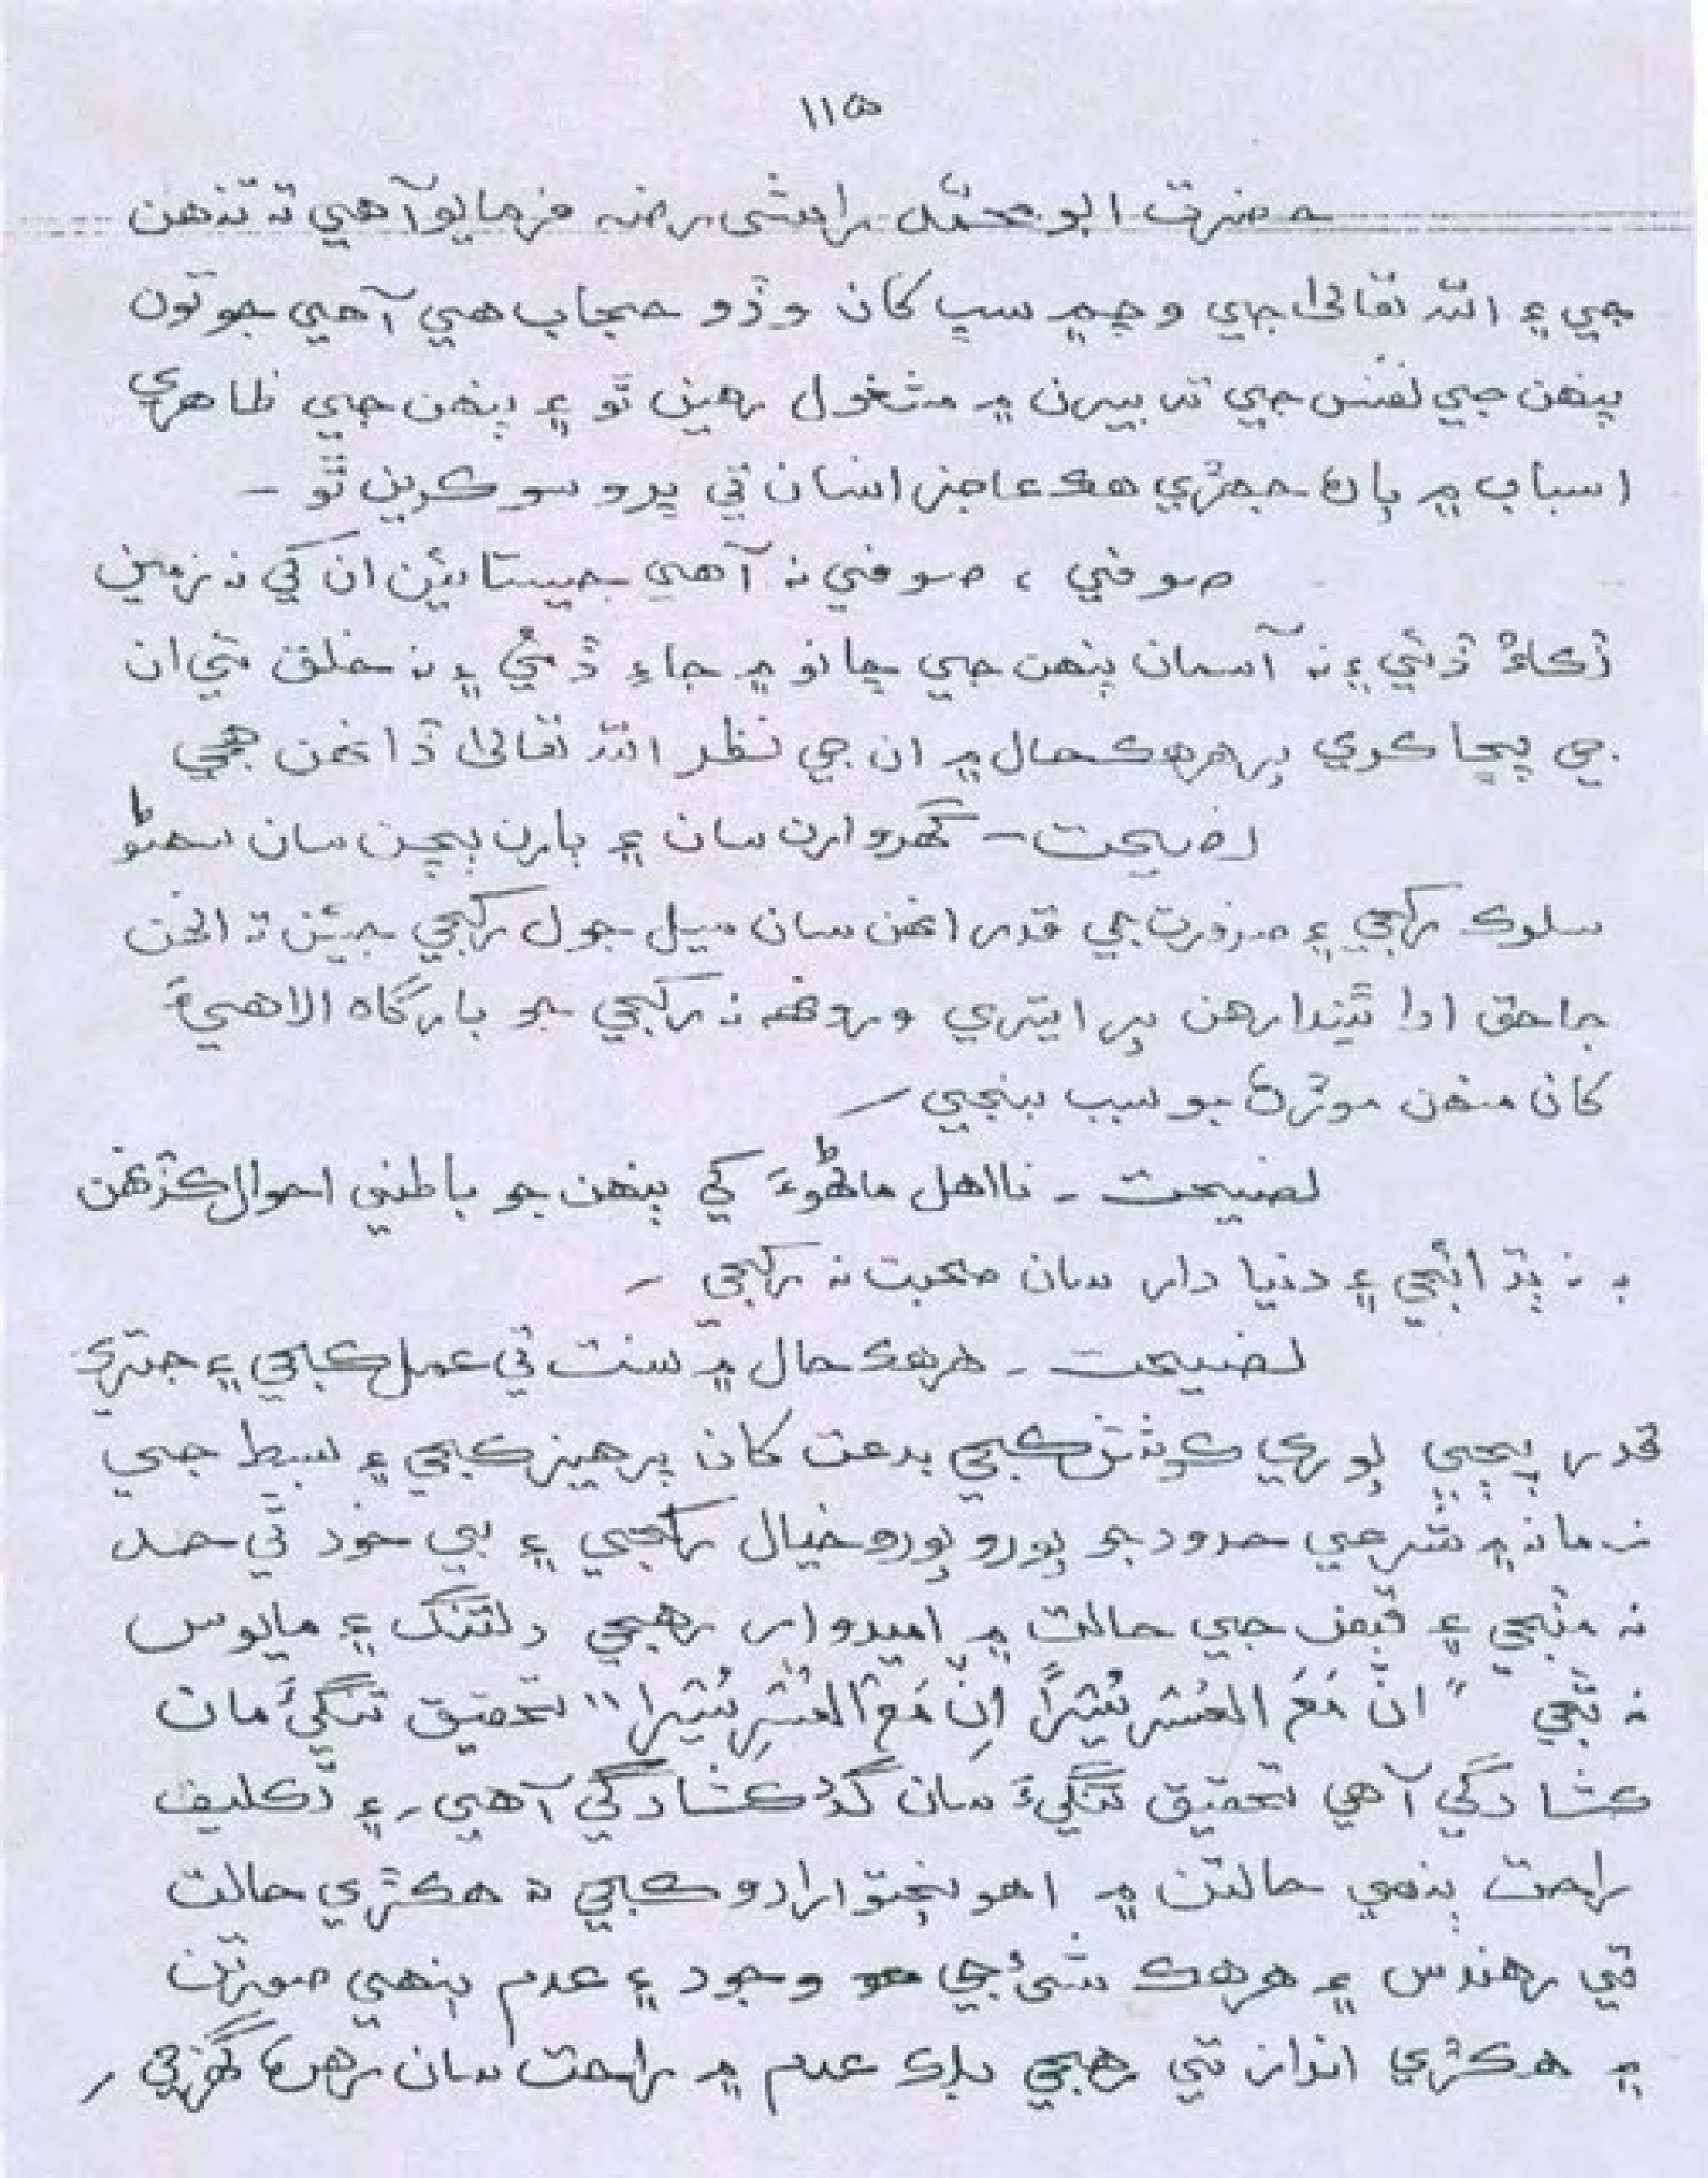 ١١٥
حضرت ابو محمّد راشي رضه فرمايو آهي ته تنهن
جي ۽ الله تعاليٰ جي وچ ۾ سڀ کان وڏو حجاب هي آهي جو تون
پنهن جي نفس جي تدبيرن ۾ مشغول رهين ٿو ۽ پنهن جي ظاهري
اسباب ۾ پاڻ جهڙي هڪ عاجز انسان تي ڀروسو ڪرين ٿو -
صوفي ، صوفي نه آهي جيستائين ان کي نه زمين
ڏکاءُ ڏئي ۽ نه آسمان پنهن جي ڇانو ۾ جاءِ ڏئي ۽ نه خلق ئي ان
جي پڇا ڪري پر هر هڪ حال ۾ ان جي نظر الله تعاليٰ ڏانهن هجي
نصيحت - گهروارن سان ۽ ٻارن ٻچن سان سهڻو
سلوڪ رکجي ۽ ضرورت جي قدر انهن سان ميل جول رکجي جيئن ته انهن
جا حق ادا ٿيندا رهن پر ايتري نه رکجي جو بارگاه الاهيءَ
کان منهن موڙڻ جو سبب بنجي
نصيحت - نااهل ماڻهوءَ کي پنهن جو باطني احوال ڪڏهن
به نه ٻڌائجي ۽ دنيا دار سان صحبت نه رکجي
نصيحت - هر هڪ حال ۾ سنت تي عمل ڪجي ۽ جتري
قدر پڄي پوري ڪوشش ڪجي بدعت کان پرهيز ڪجي ۽ بسط جي
زمانه ۾ شرعي حدود جو پورو پورو خيال رکجي ۽ بي خود ٿي حد
نه مٽجي ۽ قبض جي حالت ۾ اميدوار رهجي دلتنگ ۽ مايوس
نه ٿجي "انّ مَعَ العُسْرِ يُسْرًا اِنّ مَعَ العُسْرِ يُسْرا" تحقيق تنگيءَ مان
ڪشادگي آهي تحقيق تنگيءَ سان گڏ ڪشادگي آهي، ۽ تڪليف
راحت ٻنهي حالتن ۾ اهو پختو ارادو ڪجي ته هڪڙي حالت
تي رهندس ۽ هر هڪ شيءُ جي وجود ۽ عدم ٻنهي صورتن
۾ هڪڙي انداز تي رهجي بلڪ عدم ۾ راحت سان رهڻ گهرجي